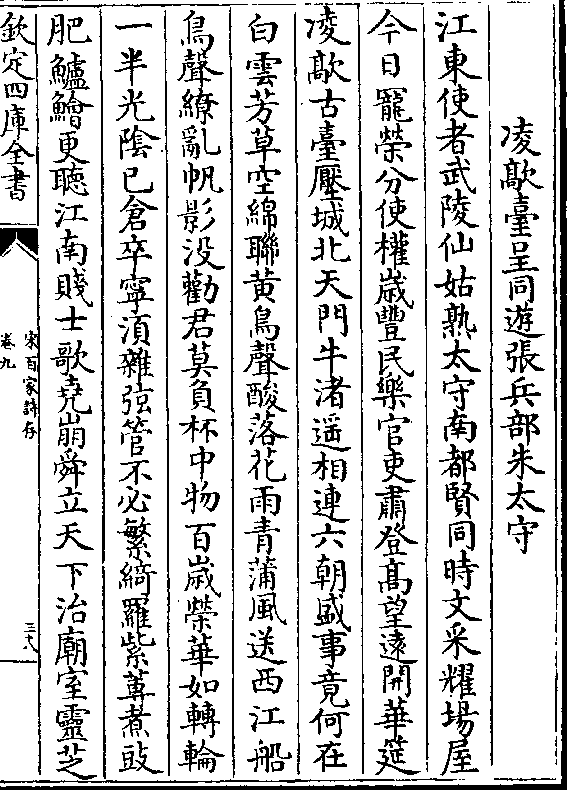 凌歊臺呈同遊張兵部朱太守
江東使者武陵仙姑熟太守南都賢同時文采耀場屋
今日寵榮分使權歳豐民樂官吏肅登髙望遠開華筵
凌歊古臺壓城北天門牛渚遥相連六朝盛事竟何在
白雲芳草空綿聯黄鳥聲酸落花雨青蒲風送西江船
鳥聲繚亂帆影没勸君莫負杯中物百歳榮華如轉輪
一半光隂已倉卒寧湏雜弦管不必繁綺羅紫蓴煮豉
肥鱸鱠更聴江南賤士歌堯崩舜立天下治廟室靈芝
欽定四庫全書
宋百家詩存
卷九
三八